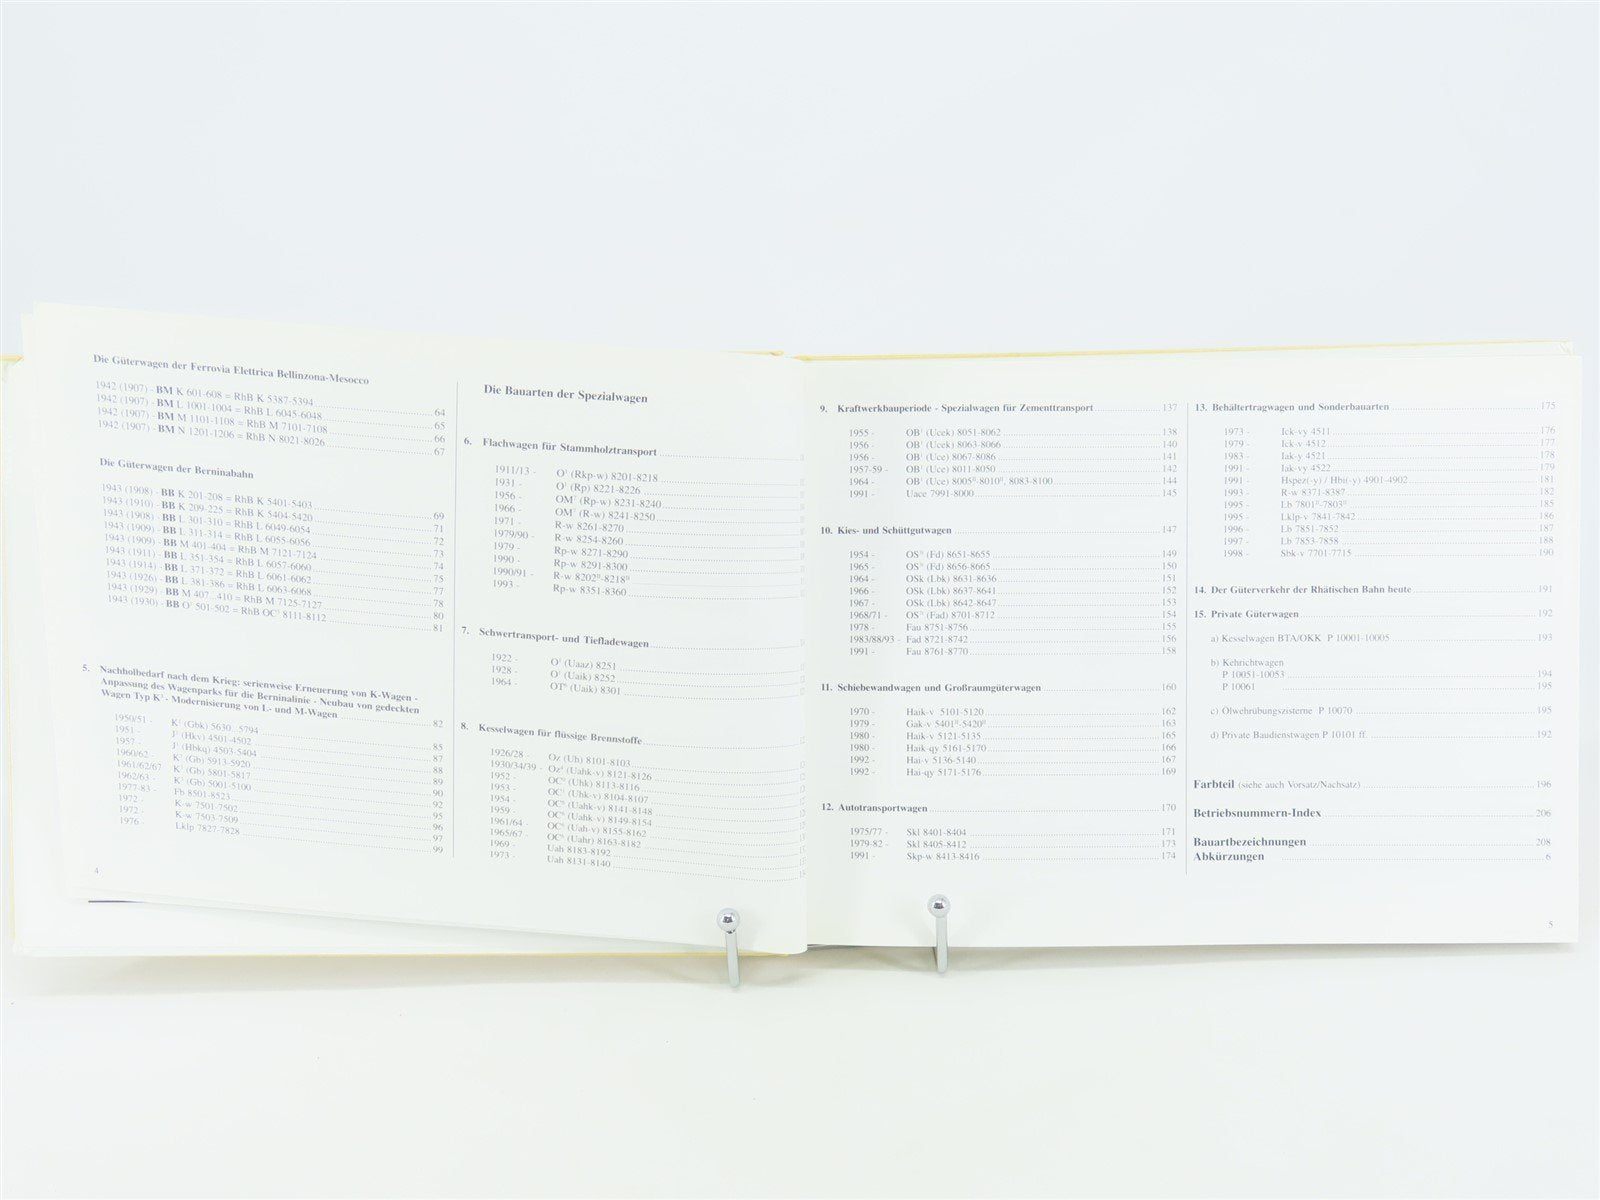 Die Güterwagen der Ferrovia Elettrica Bellinzona-Mesocco
1942 (1907) - BM K 601-608 = RhB K 5387-5394 64
1942 (1907) - BM L 1001-1004 = RhB L 6045-6048 65
1942 (1907) - BM M 1101-1108 = RhB M 7101-7108 66
1942 (1907) - BM N 1201-1206 = RhB N 8021-8026 67
Die Güterwagen der Berninabahn
1943 (1908) - BB K 201-208 = RhB K 5401-5403 69
1943 (1910) - BB K 209-225 = RhB K 5404-5420 71
1943 (1908) - BB L 301-310 = RhB L 6049-6054 72
1943 (1909) - BB L 311-314 = RhB L 6055-6056 73
1943 (1909) - BB M 401-404 = RhB M 7121-7124 74
1943 (1911) - BB L 351-354 = RhB L 6057-6060 75
1943 (1914) - BB L 371-372 = RhB L 6061-6062 77
1943 (1926) - BB L 381-386 = RhB L 6063-6068 78
1943 (1929) - BB M 407...410 = RhB M 7125-7127 80
1943 (1930) - BB O¹ 501-502 = RhB OC³ 8111-8112 81
5. Nachholbedarf nach dem Krieg: serienweise Erneuerung von K-Wagen -
Anpassung des Wagenparks für die Berninalinie - Neubau von gedeckten
Wagen Typ K³ - Modernisierung von L- und M-Wagen 82
1950/51 - K² (Gbk) 5630...5794 85
1951 - J² (Hkv) 4501-4502 87
1957 - J² (Hbkq) 4503-5404 88
1960/62 - K³ (Gb) 5913-5920 89
1961/62/67 K³ (Gb) 5801-5817 90
1962/63 - K³ (Gb) 5001-5100 92
1977-83 - Fb 8501-8523 95
1972 - K-w 7501-7502 96
1972 - K-w 7503-7509 97
1976 - Lklp 7827-7828 99
4
Die Bauarten der Spezialwagen
6. Flachwagen für Stammholztransport
1911/13 - O¹ (Rkp-w) 8201-8218
1931 - O¹ (Rp) 8221-8226
1956 - OM⁷ (Rp-w) 8231-8240
1966 - OM⁷ (R-w) 8241-8250
1971 - R-w 8261-8270
1979/90 - R-w 8254-8260
1979 - Rp-w 8271-8290
1990 - Rp-w 8291-8300
1990/91 - R-w 8202ᴵᴵ-8218ᴵᴵ
1993 - Rp-w 8351-8360
7. Schwertransport- und Tiefladewagen
1922 - O¹ (Uaaz) 8251
1928 - O¹ (Uaik) 8252
1964 - OT⁶ (Uaik) 8301
8. Kesselwagen für flüssige Brennstoffe
1926/28 - Oz (Uh) 8101-8103
1930/34/39 - Oz⁴ (Uahk-v) 8121-8126
1952 - OC⁰ (Uhk) 8113-8116
1953 - OC¹ (Uhk-v) 8104-8107
1954 - OC⁶ (Uahk-v) 8141-8148
1959 - OC⁶ (Uahk-v) 8149-8154
1961/64 - OC⁶ (Uah-v) 8155-8162
1965/67 - OC⁶ (Uahr) 8163-8182
1969 - Uah 8183-8192
1973 - Uah 8131-8140
9. Kraftwerkbauperiode - Spezialwagen für Zementtransport 137
1955 - OB¹ (Ucek) 8051-8062 138
1956 - OB¹ (Ucek) 8063-8066 140
1956 - OB¹ (Uce) 8067-8086 141
1957-59 - OB¹ (Uce) 8011-8050 142
1964 - OB¹ (Uce) 8005ᴵᴵ-8010ᴵᴵ, 8083-8100 144
1991 - Uace 7991-8000 145
10. Kies- und Schüttgutwagen 147
1954 - OS⁹ (Fd) 8651-8655 149
1965 - OS⁹ (Fd) 8656-8665 150
1964 - OSk (Lbk) 8631-8636 151
1966 - OSk (Lbk) 8637-8641 152
1967 - OSk (Lbk) 8642-8647 153
1968/71 - OS⁹ (Fad) 8701-8712 154
1978 - Fau 8751-8756 155
1983/88/93 - Fad 8721-8742 156
1991 - Fau 8761-8770 158
11. Schiebewandwagen und Großraumgüterwagen 160
1970 - Haik-v 5101-5120 162
1979 - Gak-v 5401ᴵᴵ-5420ᴵᴵ 163
1980 - Haik-v 5121-5135 165
1980 - Haik-qy 5161-5170 166
1992 - Hai-v 5136-5140 167
1992 - Hai-qy 5171-5176 169
12. Autotransportwagen 170
1975/77 - Skl 8401-8404 171
1979-82 - Skl 8405-8412 173
1991 - Skp-w 8413-8416 174
13. Behältertragwagen und Sonderbauarten 175
1973 - Ick-vy 4511 176
1979 - Ick-v 4512 177
1983 - Iak-y 4521 178
1991 - Iak-vy 4522 179
1991 - Hspez(-y) / Hbi(-y) 4901-4902 181
1993 - R-w 8371-8387 182
1995 - Lb 7801ᴵᴵ-7803ᴵᴵ 185
1995 - Lklp-v 7841-7842 186
1996 - Lb 7851-7852 187
1997 - Lb 7853-7858 188
1998 - Sbk-v 7701-7715 190
14. Der Güterverkehr der Rhätischen Bahn heute 191
15. Private Güterwagen 192
a) Kesselwagen BTA/OKK P 10001-10005 193
b) Kehrichtwagen
P 10051-10053 194
P 10061 195
c) Ölwehrübungszisterne P 10070 195
d) Private Baudienstwagen P 10101 ff. 192
Farbteil (siehe auch Vorsatz/Nachsatz) 196
Betriebsnummern-Index 206
Bauartbezeichnungen 208
Abkürzungen 6
5